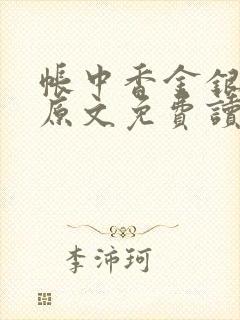 帳中香金銀
原文免費讀
李沛珂